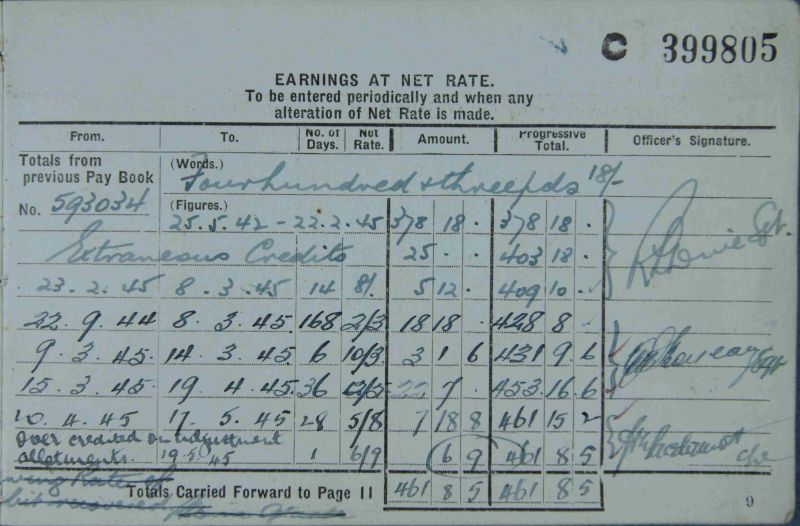 C 399805
EARNINGS AT NET RATE.
To be entered periodically and when any
alteration of Net Rate is made.
From. To. No. of Days. Net Rate. Amount. Progressive Total. Officer's Signature.
Totals from previous Pay Book (Words.) Four hundred & three pds 18/-
No. 593034 (Figures.) 25.5.42 - 22.2.45 378 18 . 378 18 .
Extraneous Credits 25 . 403 18 .
23. 2. 45 8. 3. 45 14 8/. 5 12 . 409 10 .
22. 9. 44 8. 3. 45. 168 2/3 18 18 . 428 8 -
9. 3. 45. 14. 3. 45. 6 10/3 3 1 6 431 9 6
15. 3. 45. 19. 4. 45. 36 7 . 453. 16 6
20. 4. 45 17. 5. 45 28 5/8 7 18 8 461 15 2
Over credited on adjustment
allotments. 19.5.45 1 6/9 6 9 461 8 5
Totals Carried Forward to Page 11 461 8 5 461 8 5
9